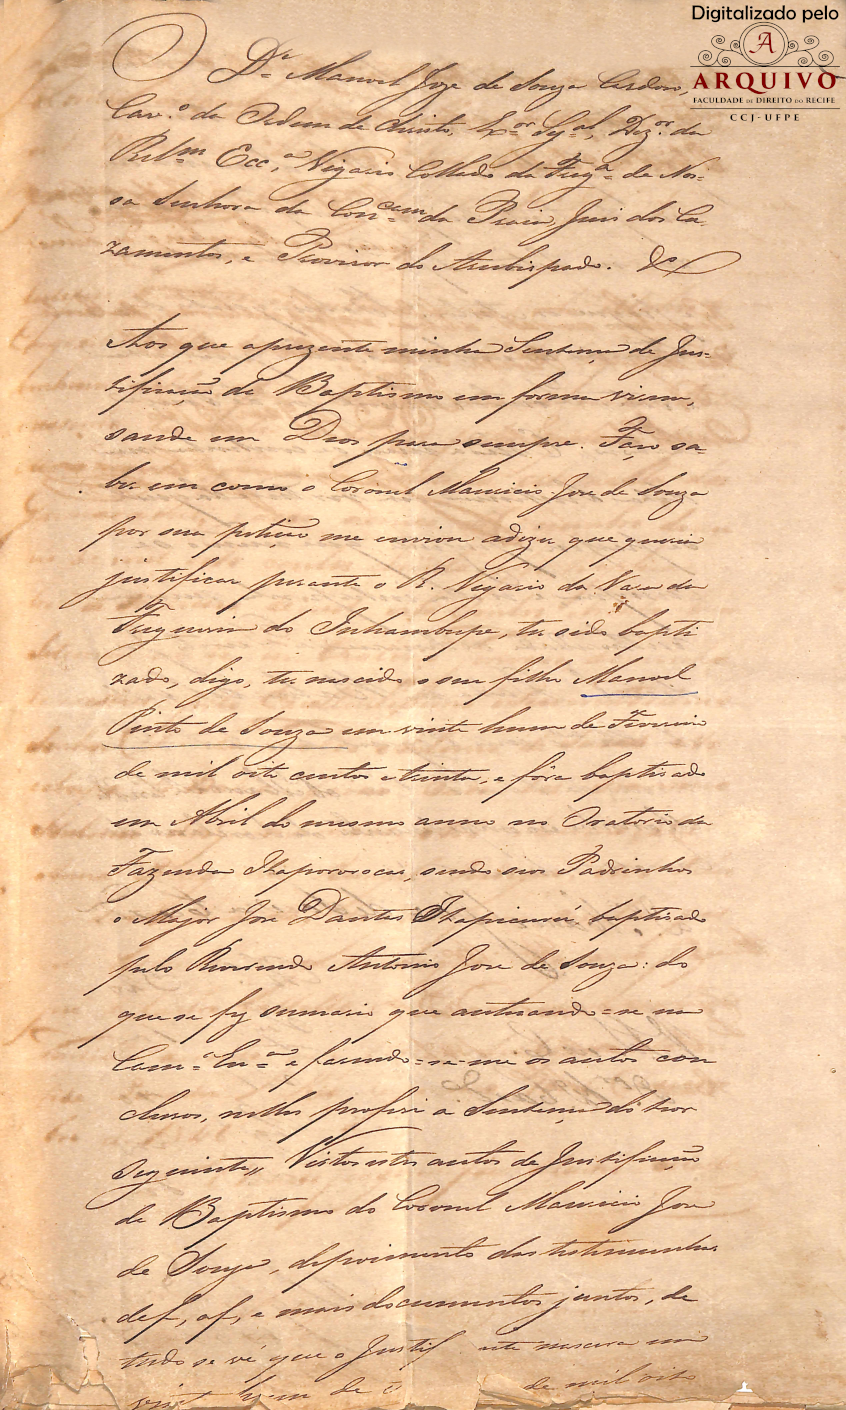 Digitalizado pelo
A
ARQUIVO
FACULDADE DE DIREITO DO RECIFE
CCJ-UFPE
O Dr. Manoel Joze de Souza Cardoso,
Cav.º da Ordem de Christo, Ex.or Sy.al, Dez.or da
Rel.m Ecc.a, Vigario Collado da Freg.a de Nos-
sa Senhora da Con.cam da Praia, Juiz dos Ca-
zamentos, e Provisor do Arcebispado. &
Aos que a prezente minha Sentença de Jus-
tificação de Baptismo em forma virem,
saude em Deos para sempre. Faço sa-
ber em como o Coronel Mauricio Jose de Souza
por sua petição me enviou a dizer que queria
justificar perante o R. Vigario da Vara da
Freguezia do Inhambupe, ter sido bapti
zado, digo, ter nascido o seu filho Manoel
Pinto de Souza em vinte hum de Fevereiro
de mil oito centos e trinta, e fôra baptisado
em Abril do mesmo anno no Oratorio da
Fazenda Itapororocas, sendo seos Padrinhos
o Major Jose Dantas Itapicurú, baptisado
pelo Reverendo Antonio Jose de Souza: do
que se fez sumario que autuando=se na
Cam.a Ec.a e fasendo=se-me os autos con
clusos, nelles proferi a Sentença do teor
seguinte,, Vistos estes autos de Justificação
de Baptismo do Coronel Mauricio Jose
de Souza, depoimento das testimunhas
de f, af, e mais documentos juntos, de
tudo se vê que o Justif ante nascera em
hum de de mil oito